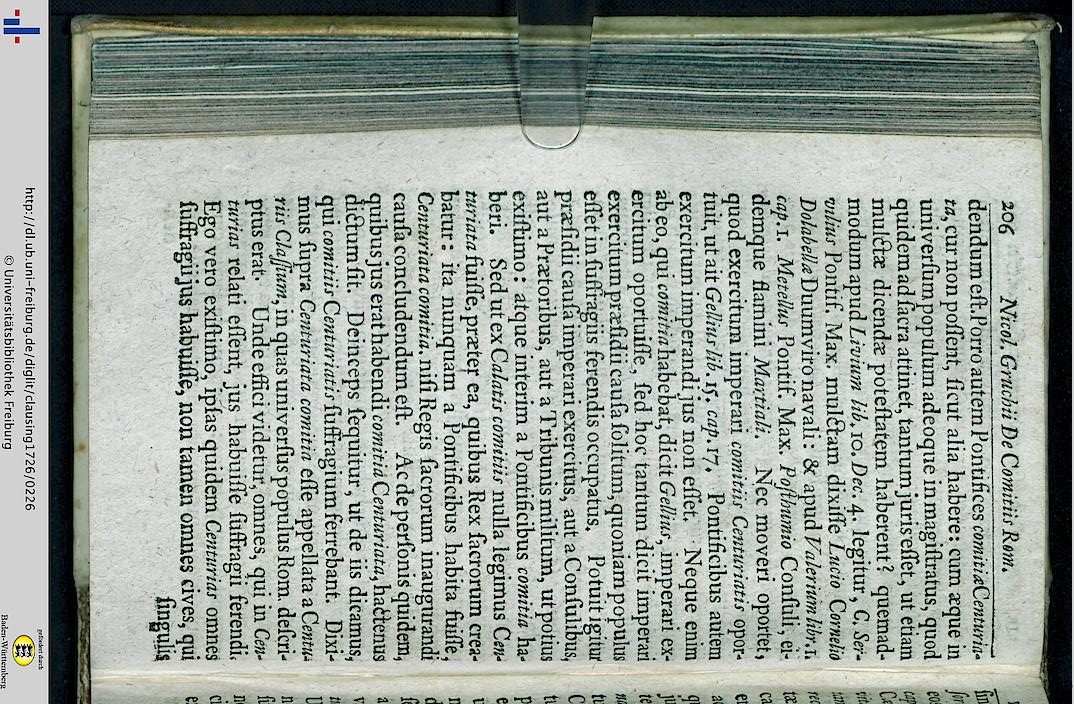 206 Nicol. Gruchii De Comitiis Rom.
dendum est. Porro autem Pontifices comitia Centuria-
ta, cur non possent, sicut alia habere: cum æque in
universum populum adeoque in magistratus, quod
quidem ad sacra attinet, tantum juris esset, ut etiam
mulctæ dicendæ potestatem haberent? quenad-
modum apud Livium lib. 10. Dec. 4. legitur, C. Ser-
vilius Pontif. Max. mulctam dixisse Lucio Cornelio
Dolabellæ Duumviro navali: & apud Valerium libr. 1.
cap. 1. Metellus Pontif. Max. Posthumio Consuli, ei-
demque flamini Martiali. Nec moveri oportet,
quod exercitum imperari comitiis Centuriatis opor-
tuit, ut ait Gellius lib. 15. cap 17. Pontificibus autem
exercitum imperandi, jus non esset. Neque enim
ab eo, qui comitia habebat, dicit Gellius, imperari ex-
ercitum oportuisse, sed hoc tantum dicit imperari
exercitum præsidii causa solitum, quoniam populus
esset in suffragiis ferendis occupatus. Potuit igitur
Præsidii causa imperari exercitus, aut a Consulibus,
aut a Prætoribus, aut a Tribunis militum, ut potius
existimo: atque interim a Pontificibus comitia ha-
beri. Sed ut ex Calatis comitiis nulla legimus Cen-
turiata fuisse, præter ea, quibus Rex sacrorum crea-
batur: ita nunquam a Pontificibus habita fuisse,
Centuriata comitia, nisi Regis sacrorum inaugurandi
causa concludendum est. Ac de personis quidem,
quibus jus erat habendi comitia Centuriata, hactenus
dictum sit. Deinceps sequitur, ut de iis dicamus,
qui comitiis Centuriatis suffragium ferrebant. Dixi-
mus supra Centuriata comitia esse appellata a Centu-
riis Classium, in quas universus populus Rom. descri-
ptus erat. Unde effici videtur, omnes, qui in Cen-
turias relati essent, jus habuisse suffragii ferendi.
Ego vero existimo, ipsas quidem Centurias omnes
suffragii jus habuisse, non tamen omnes cives, qui
singulis
http://dl.ub.uni-freiburg.de/diglit/clausing1726/0226
© Universitätsbibliothek Freiburg
gefördert durch
Baden-Württemberg